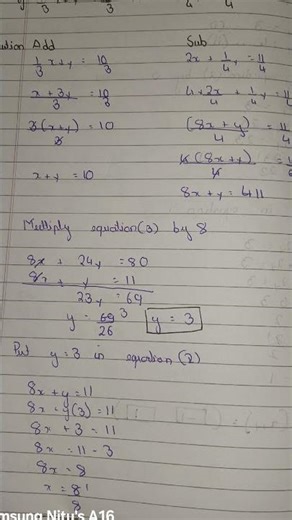 ution Add Sub
1/3 x+y = 10/3 2x + 1/4 y = 11/4
x + 3y / 3 = 10/3 4×2x/4 + 1/4 y = 11/4
3(x+y) = 10 (8x + y)/4 = 11/4
(8x+y)
x+y = 10
8x + y = 11
Multiply equation(3) by 8
8x + 24y = 80
8x + y = 11
23y = 69
y = 69/26 3 y = 3
Put y=3 in equation (2)
8x + y = 11
8x + y(3) = 11
8x + 3 = 11
8x = 11 - 3
8x = 8
x = 8/8 1
msung Nitu's A16